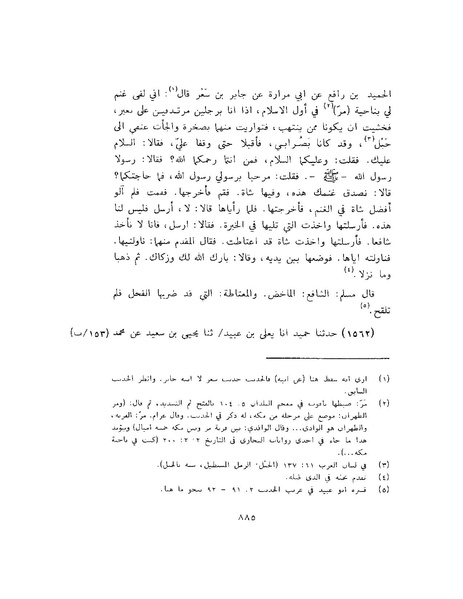 الحميد بن رافع عن ابي مرارة عن جابر بن سَعْر قال(١): اني لفي غنم
لي بناحية (مرّ)(٢) في أول الاسلام، اذا انا برجلين مرتدفين على بعير،
فخشيت ان يكونا ممن ينتهب، فتواريت منهما بصخرة والجأت غنمي الى
حَبْل(٣)، وقد كانا بَصُرابي، فأقبلا حتى وقفا عليّ، فقالا: السلام
عليك. فقلت: وعليكما السلام، فمن انتما رحمكما الله؟ فقالا: رسولا
رسول الله - ﷺ -. فقلت: مرحبا برسولي رسول الله، فما حاجتكما؟
قالا: نصدق غنمك هذه، وفيها شاة. فقم فأخرجها. فقمت فلم آلو
أفضل شاة في الغنم، فأخرجتها. فلما رأياها قالا: لا، أرسل فليس لنا
هذه. فأرسلتها واخذت التي تليها في الخيرة. فقالا: ارسل، فانا لا نأخذ
شافعا. فأرسلتها واخذت شاة قد اعتاطت. فقال المقدم منهما: ناولنيها.
فناولته اياها. فوضعها بين يديه، وقالا: بارك الله لك وزكاك. ثم ذهبا
وما نزلا.(٤)
قال مسلم: الشافع: الماخض. والمعتاطة: التي قد ضربها الفحل فلم
تلقح.(٥)
(١٥٦٢) حدثنا حميد أنا يعلى بن عبيد/ ثنا يحيى بن سعيد عن محمد (١٥٣/ب)
(١) ارى انه سقط هنا (عن ابيه) فالحديث حديث سعر لا ابنه جابر. وانظر الحديث
السابق.
(٢) مَرّ: ضبطها ياقوت في معجم البلدان ٥: ١٠٤ بالفتح ثم التشديد، ثم قال: (ومر
الظهران: موضع على مرحلة من مكة، له ذكر في الحديث. وقال عرام: مرّ: القرية،
والظهران هو الوادي... وقال الواقدي: بين مر وبين مكة خمسة اميال) ويؤيد
هذا ما جاء في احدى روايات البخاري في التاريخ ٢: ٢: ٢٠٠ (كنت في ناحية
مكة...).
(٣) في لسان العرب ١١: ١٣٧ (الحَبْل: الرمل المستطيل، شبه بالحبل).
(٤) تقدم بحثه في الذي قبله.
(٥) فسره ابو عبيد في غريب الحديث ٢: ٩١ - ٩٢ بنحو ما هنا.
٨٨٥